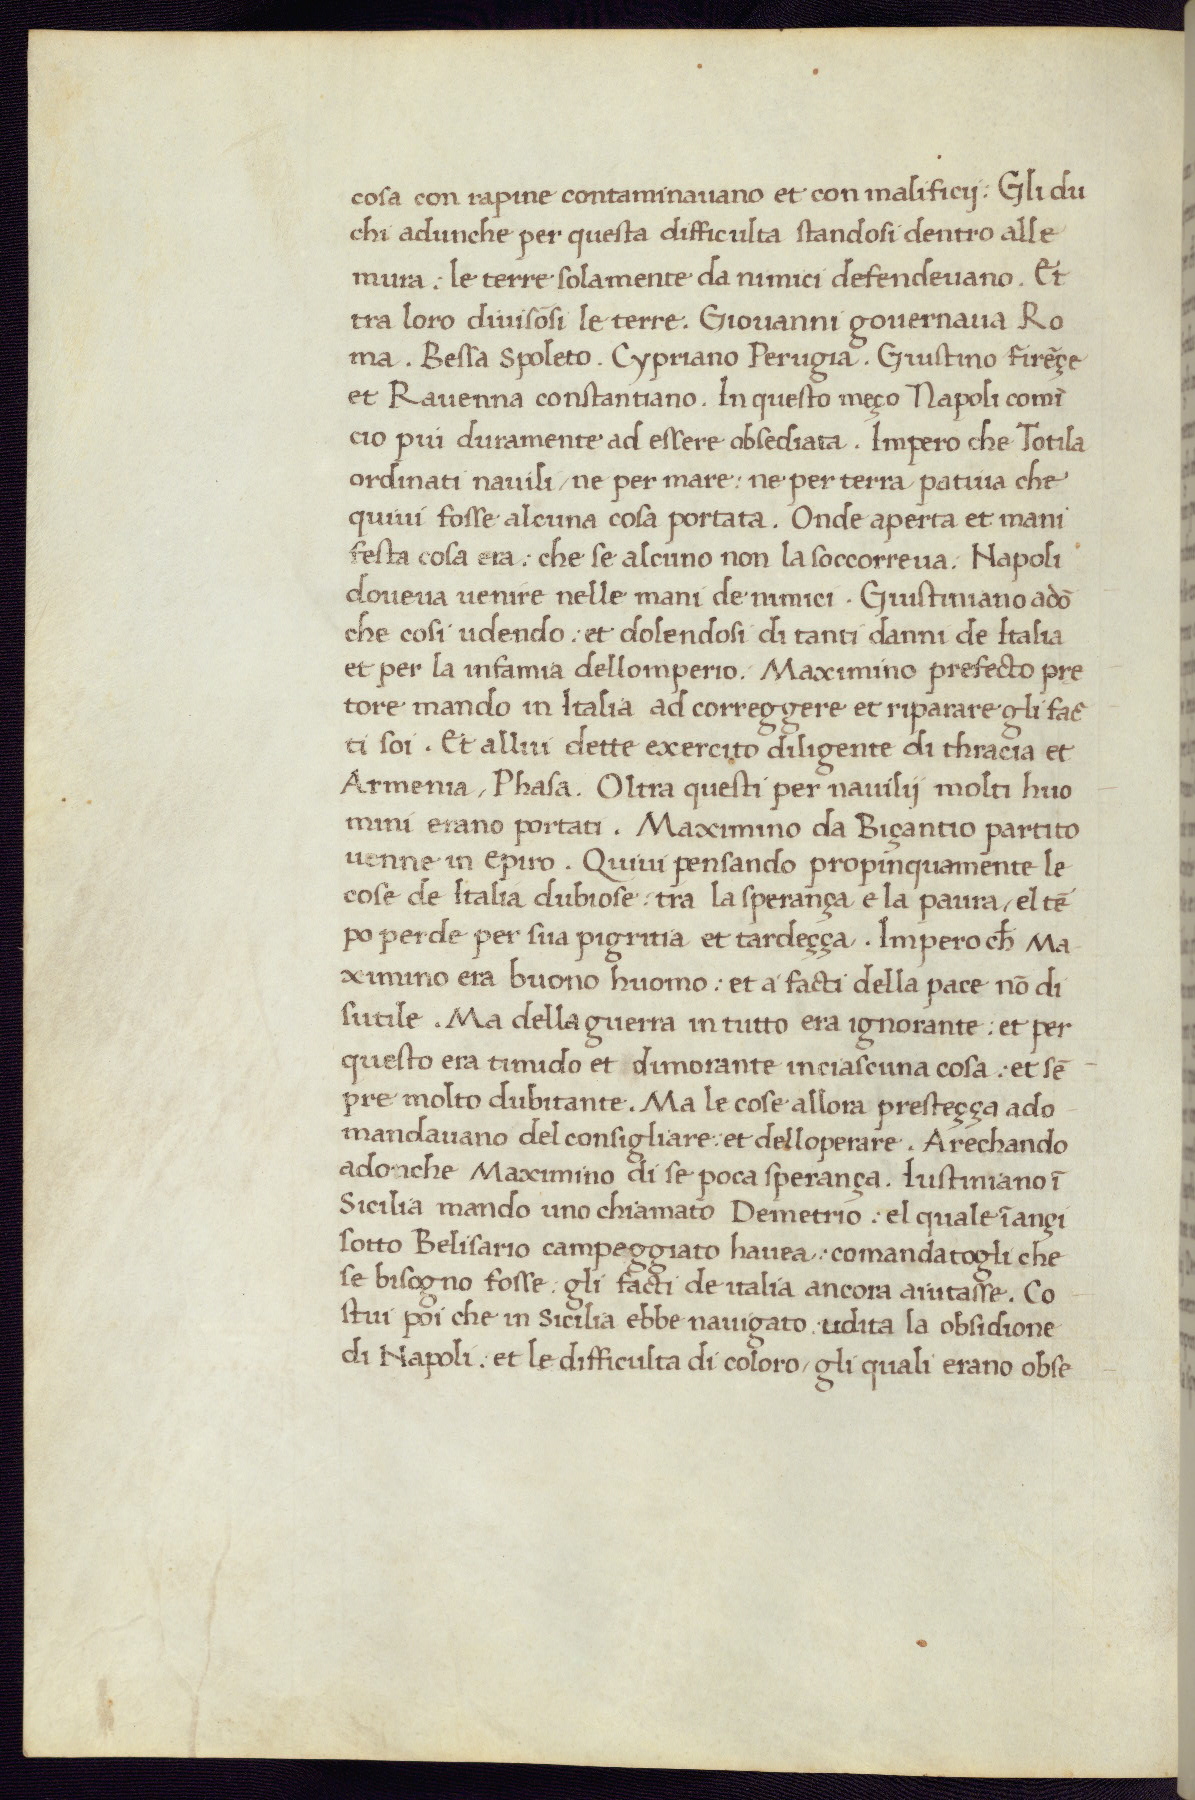 cosa con rapine contaminauano et con malificij: Gli du
chi adunche per questa difficulta standosi dentro alle
mura: le terre solamente da nimici defendeuano. Et
tra loro diuisōsi le terre. Giouanni gouernaua Ro
ma. Bessa Spoleto. Cypriano Perugia. Giustino firēçe
et Rauenna constantiano. In questo meço Napoli comī
cio piu duramente ad essere obsediata. Impero che Totila
ordinati nauili/ ne per mare: ne per terra patiua che
quiui fosse alcuna cosa portata. Onde aperta et mani
festa cosa era: che se alcuno non la soccorreua. Napoli
doueua uenire nelle mani de nimici. Giustiniano adō
che cosi udendo: et dolendosi di tanti danni de Italia
et per la infamia dellomperio. Maximino prefecto pre
tore mando in Italia ad correggere et riparare gli fac
ti soi. Et allui dette exercito diligente di thracia et
Armenia/ Phasa. Oltra questi per nauilij molti huo
mini erano portati. Maximino da Biçantio partito
uenne in epiro. Quiui pensando propinquamente le
cose de Italia dubiose: tra la sperança e la paura/ el tē
po perde per sua pigritia et tardeçça. Impero ch̄ Ma
ximino era buono huomo: et a facti della pace nō di
sutile. Ma della guerra in tutto era ignorante: et per
questo era timido et dimorante in ciascuna cosa: et sē
pre molto dubitante. Ma le cose allora presteçça ado
mandauano del consigliare: et delloperare. Arechando
adonche Maximino di se poca sperança. Iustiniano ī
Sicilia mando uno chiamato Demetrio: el quale īançi
sotto Belisario campeggiato hauea: comandatogli che
se bisogno fosse: gli facti de italia ancora aiutasse. Co
stui poi che in Sicilia ebbe nauigato: udita la obsidione
di Napoli: et le difficulta di coloro/ gli quali erano obse